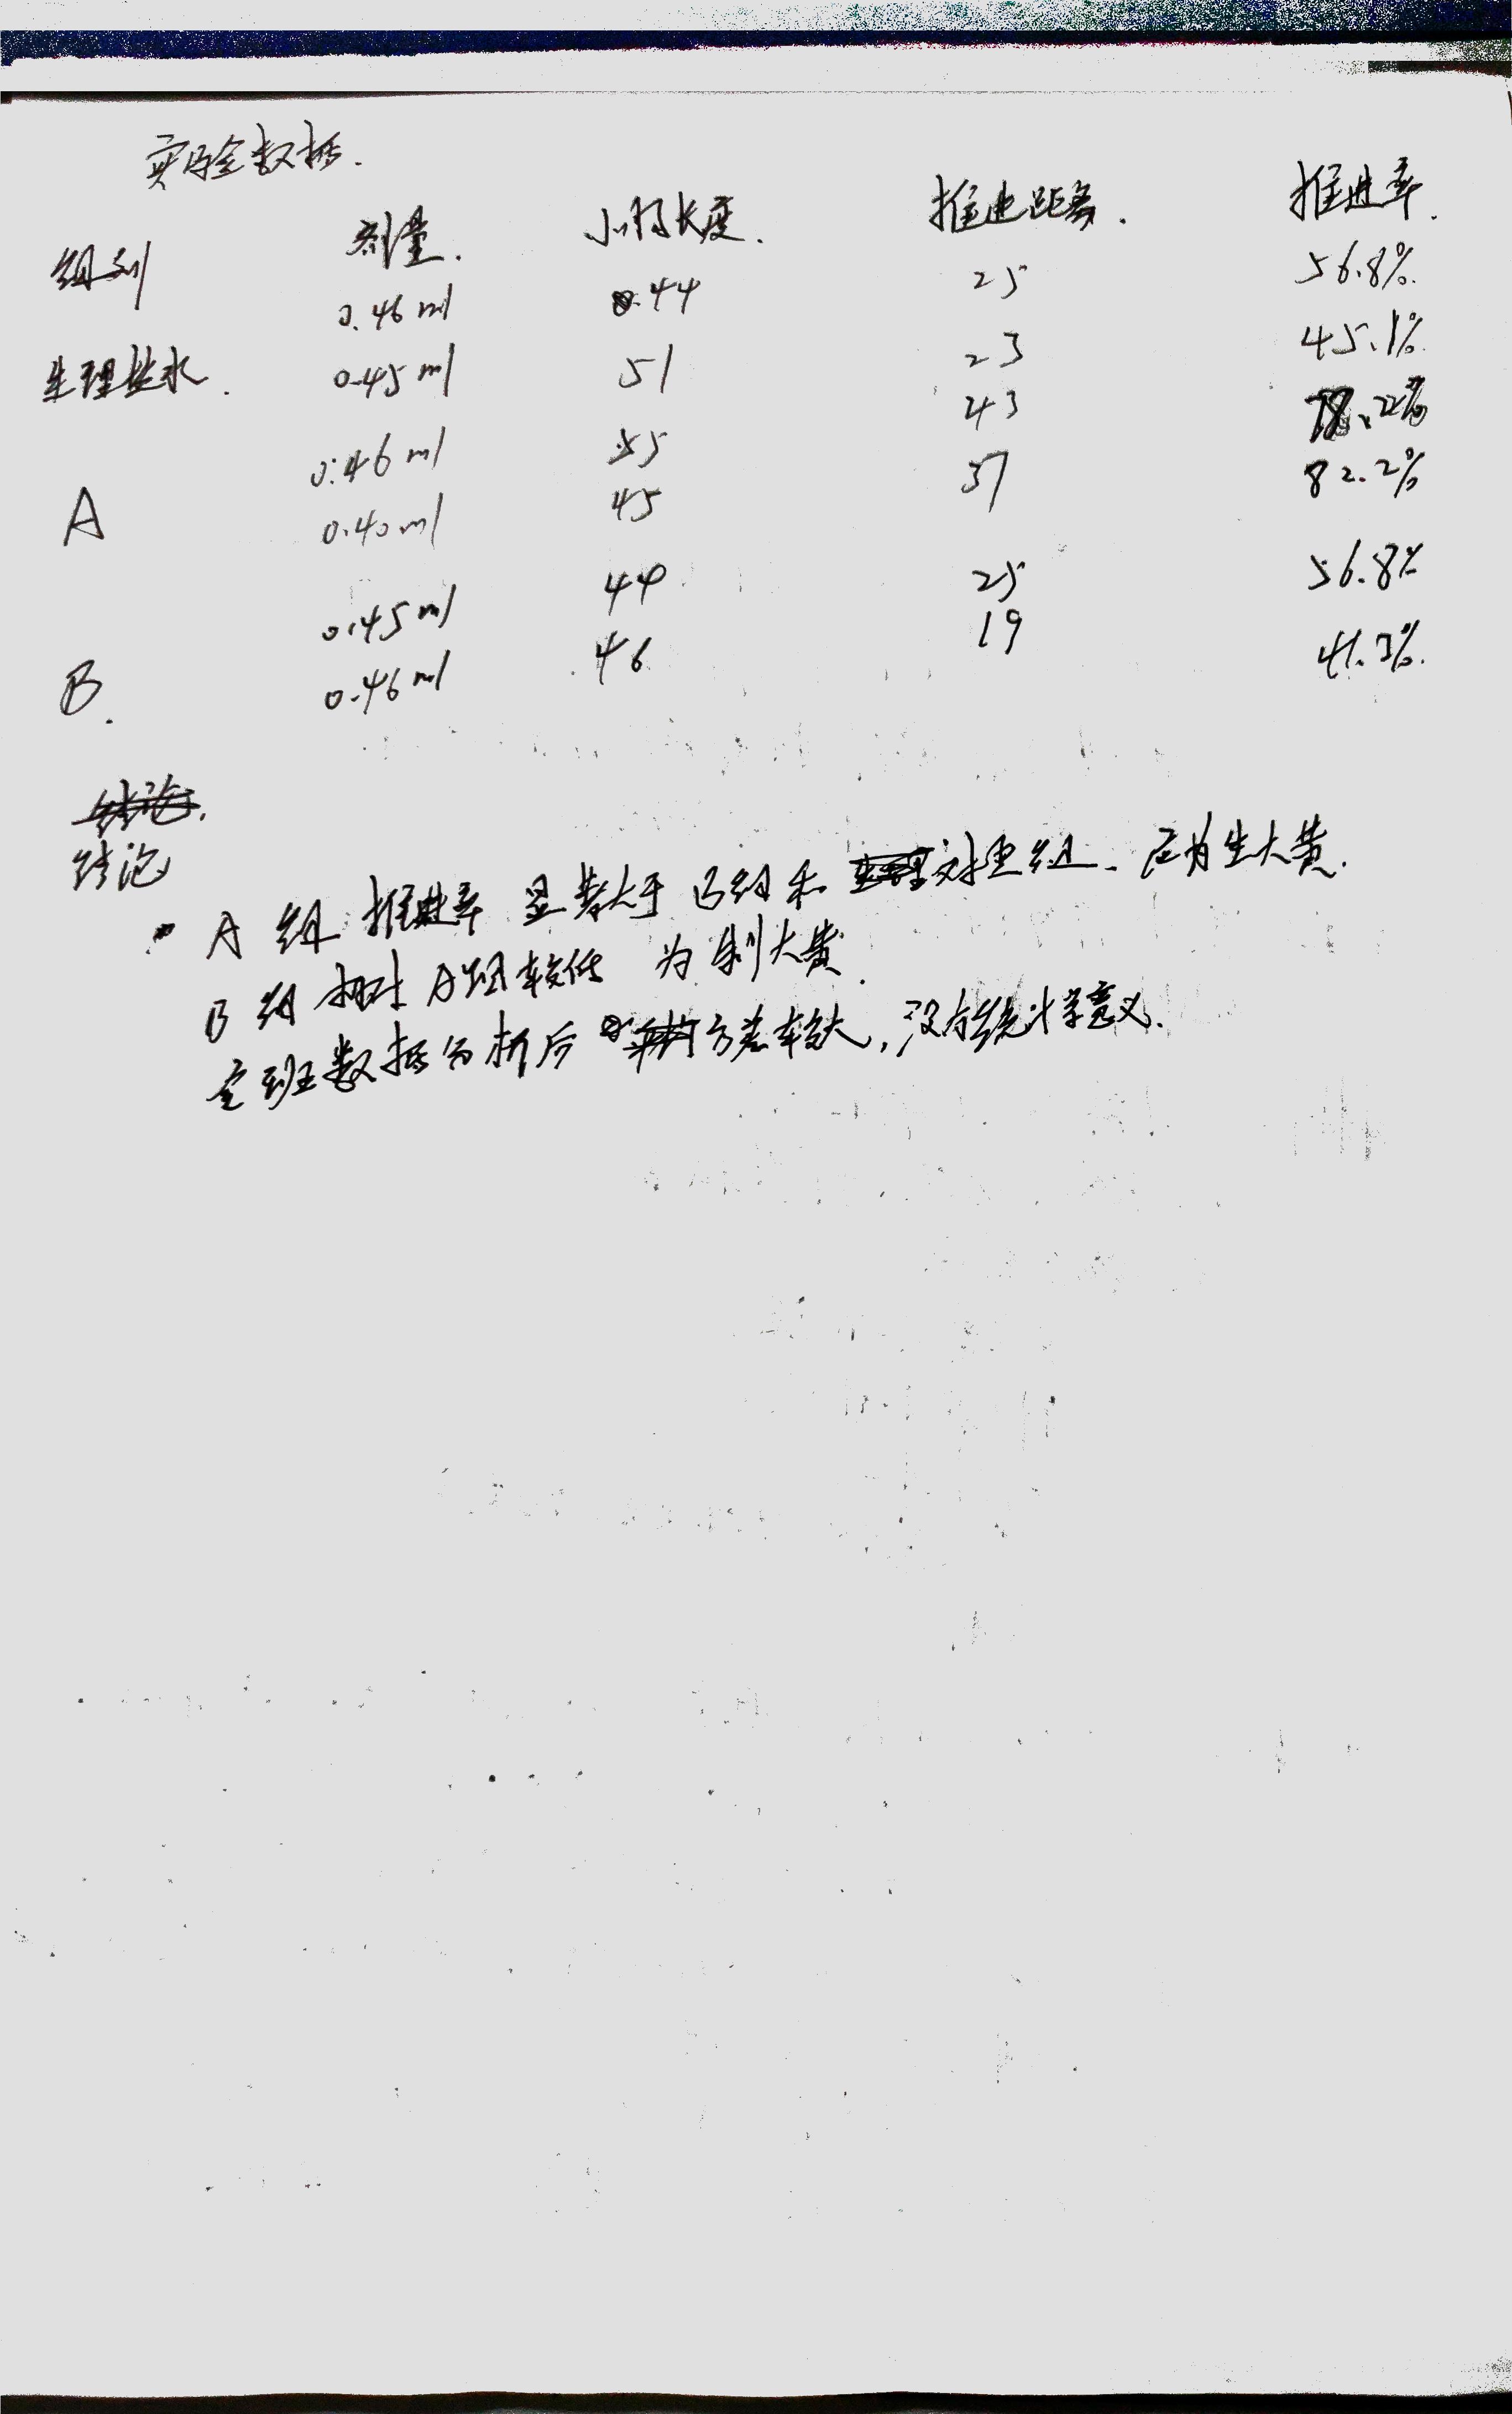 实验数据.
组别 剂量. 小肠长度. 推进距离. 推进率.
0.46ml 44 25 56.8%.
生理盐水. 0.45ml 51 23 45.1%
0.46ml 55 43 78.2%
A 0.40ml 45 37 82.2%
0.45ml 44 25 56.8%
B. 0.46ml 46 19 41.3%.
结论
A组 推进率 显著大于 B组和 对照组. 应为生大黄.
B组 相对A组较低 为制大黄.
全班数据分析后 方差较大, 没有统计学意义.